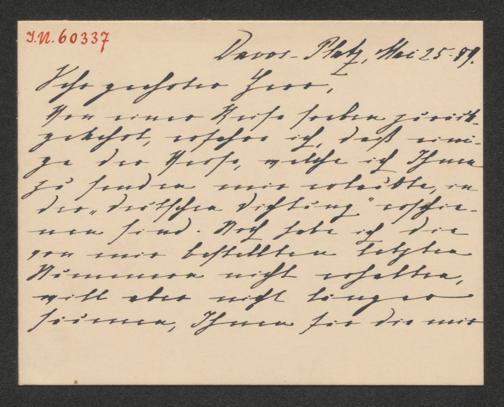 I.N. 60337
Davos-Platz, Mai 25. 89.
Sehr geehrter Herr,
Von einer Reise soeben zurück-
gekehrt, erfahre ich, daß eini-
ge der Verse, welche ich Ihnen
zu senden mir erlaubte, in
der „deutschen Dichtung" erschie-
nen sind. Noch habe ich die
von mir bestellten letzten
Nummern nicht erhalten,
will aber nicht länger
säumen, Ihnen für die mir